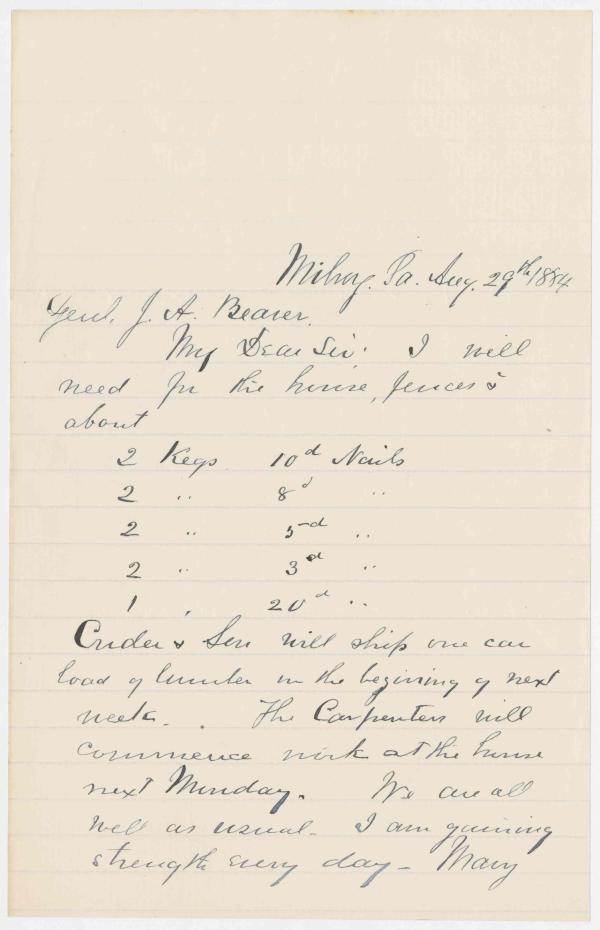 Milroy, Pa. Aug. 29th 1884
Genl. J. A. Beaver.
My Dear Sir: I will
need for the house, fences &
about
2 Kegs 10d Nails
2 " 8d "
2 " 5d "
2 " 3d "
1 " 20d "
Crider & Son will ship one car
load of lumber in the begining of next
week. The Carpenters will
commence work at the house
next Monday. We are all
well as usual. I am gaining
strength every day - Mary